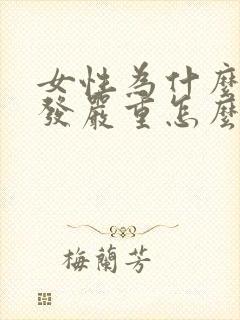 女性為什麼
發嚴重怎麼
梅蘭芳